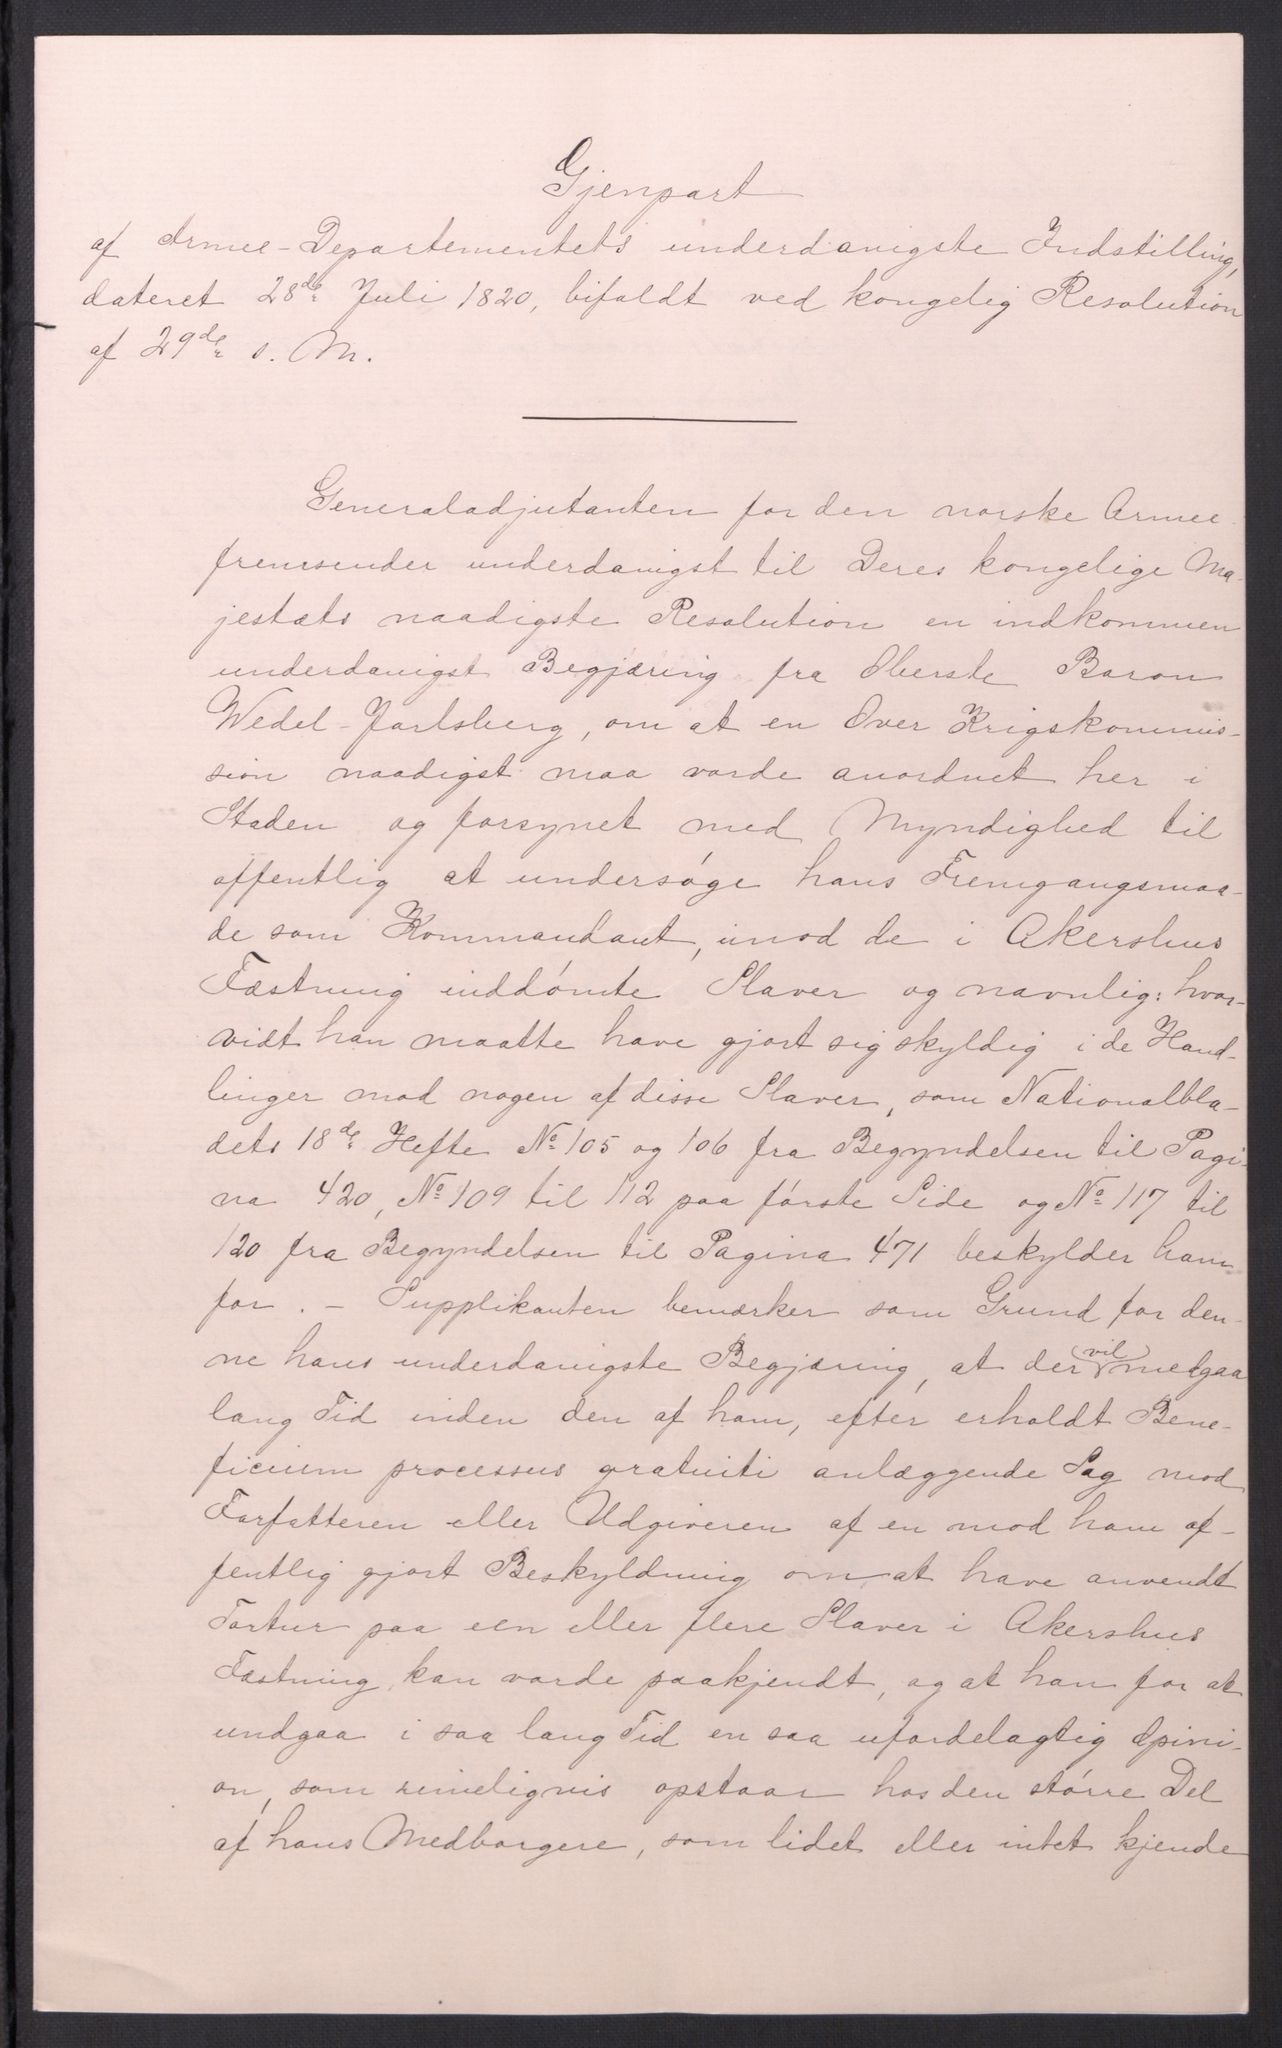 Gjenpart
af Armee-Departementets underdanigste Indstilling,
dateret 28de Juli 1820, bifaldt ved kongelig Resolution
af 29de s. M.
Generaladjutanten for den norske Armee
fremsender underdanigst til Deres kongelige Ma-
jestæts naadigste Resolution en indkommen
underdanigst Begjæring fra Oberste Baron
Wedel-Jarlsberg, om at en Over Krigskommis-
sion naadigst maa vorde anordnet her i
Staden og forsynet med Myndighed til
offentlig at undersøge hans Fremgangsmaa-
de som Kommandant, imod de i Akershus
Fæstning inddømte Slaver og navnlig: hvor-
vidt han maatte have gjort sig skyldig i de Hand-
linger mod nogen af disse Slaver, som Nationalbla-
dets 18de Hefte No 105 og 106 fra Begyndelsen til Pagi-
na 420, No 109 til 112 paa første Side og No 117 til
120 fra Begyndelsen til Pagina 471 beskylder ham
for. - Supplikanten bemærker som Grund for den-
ne hans underdanigste Begjæring, at der vil medgaa
lang Tid inden den af ham, efter erholdt Bene-
ficium processus gratuiti anlæggende Sag mod
Forfatteren eller Udgiveren af en mod ham of-
fentlig gjort Beskyldning om at have anvendt
Tortur paa een eller flere Slaver i Akershus
Fæstning kan vorde paakjendt, og at han for at
undgaa i saa lang Tid en saa ufordelagtig Opini-
on, som rimeligvis opstaar hos den større Del
af hans Medborgere, som lidet eller intet kjende